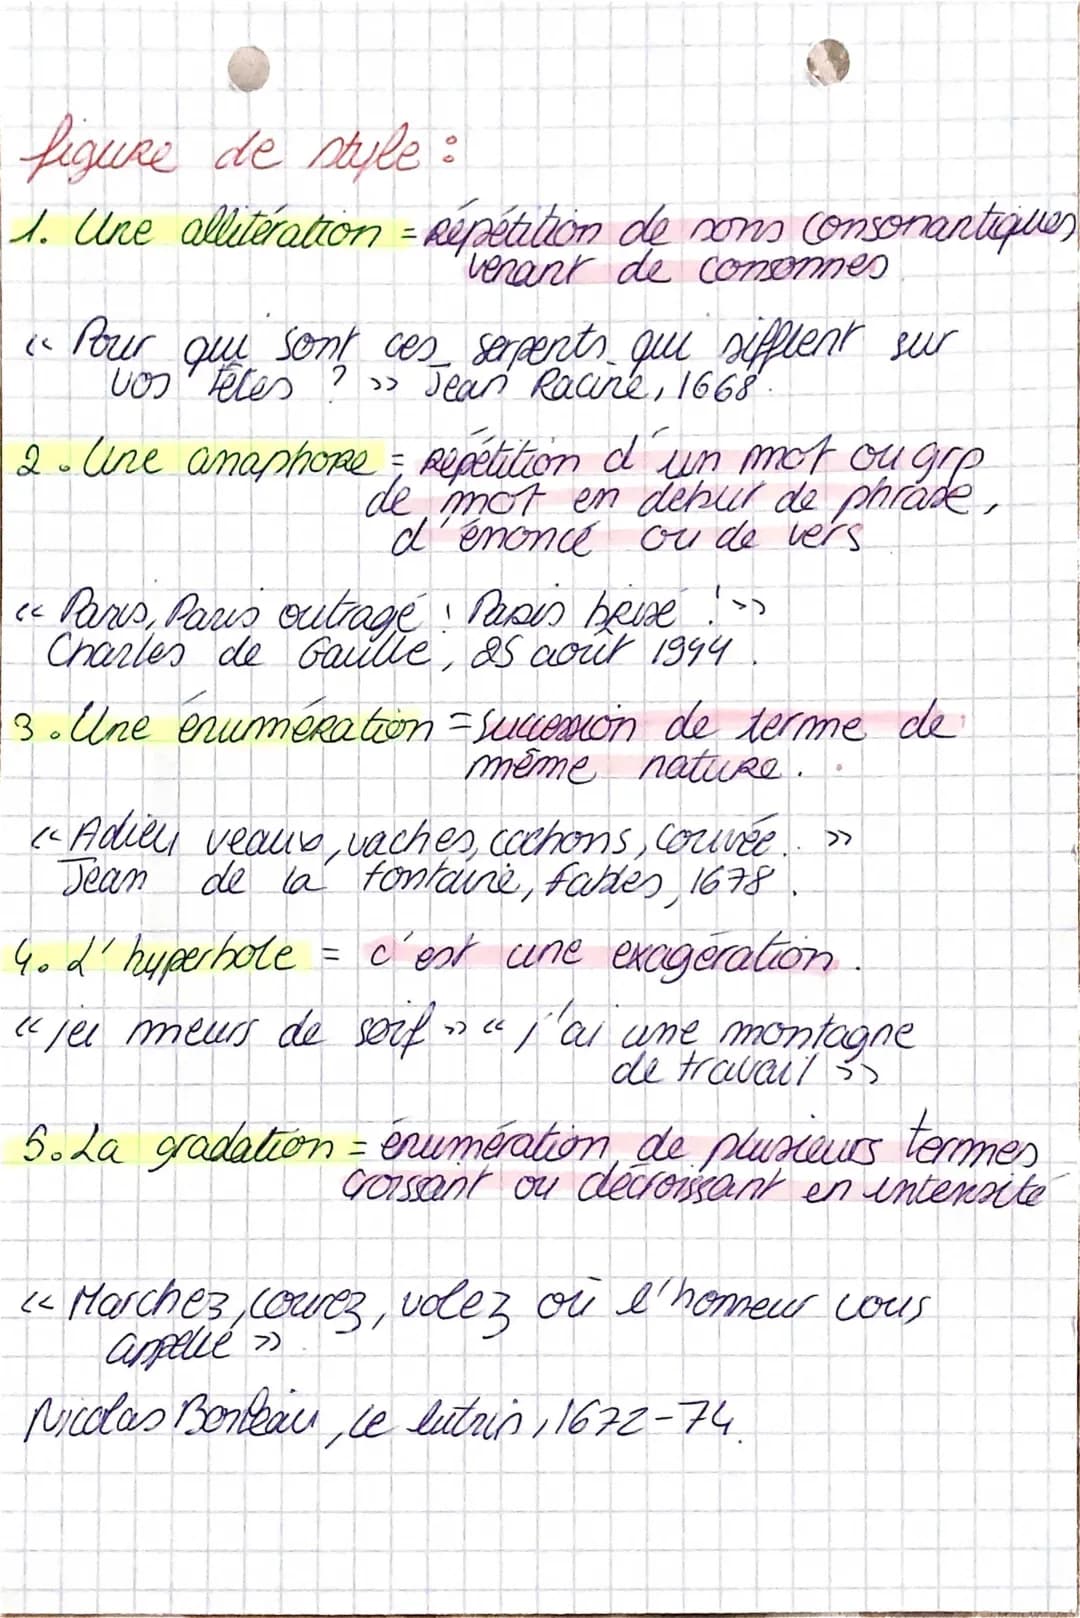 figure de style :
1. Une allitération = répétition de sons consonantiques
venant de consonnes
« Pour qui sont ces serpents qui sifflent sur
vos têtes ? » Jean Racine, 1668.
2. Une anaphore = répétition d'un mot ou grp
de mot en debut de phrase,
d'énoncé ou de vers
« Paris, Paris outragé ! Paris brisé ! »
Charles de Gaulle, 25 août 1944.
3. Une énumération = succession de terme de
même nature.
« Adieu veaux, vaches, cochons, couvée.. »
Jean de la fontaine, fables, 1678.
4. L'hyperbole = c'est une exagération.
« je meurs de soif » « j'ai une montagne
de travail »
5. La gradation = énumération de plusieurs termes
croissant ou décroissant en intensité
« Marchez, courez, volez où l'honneur vous
appelle »
Nicolas Boileau, le lutrin, 1672-74.